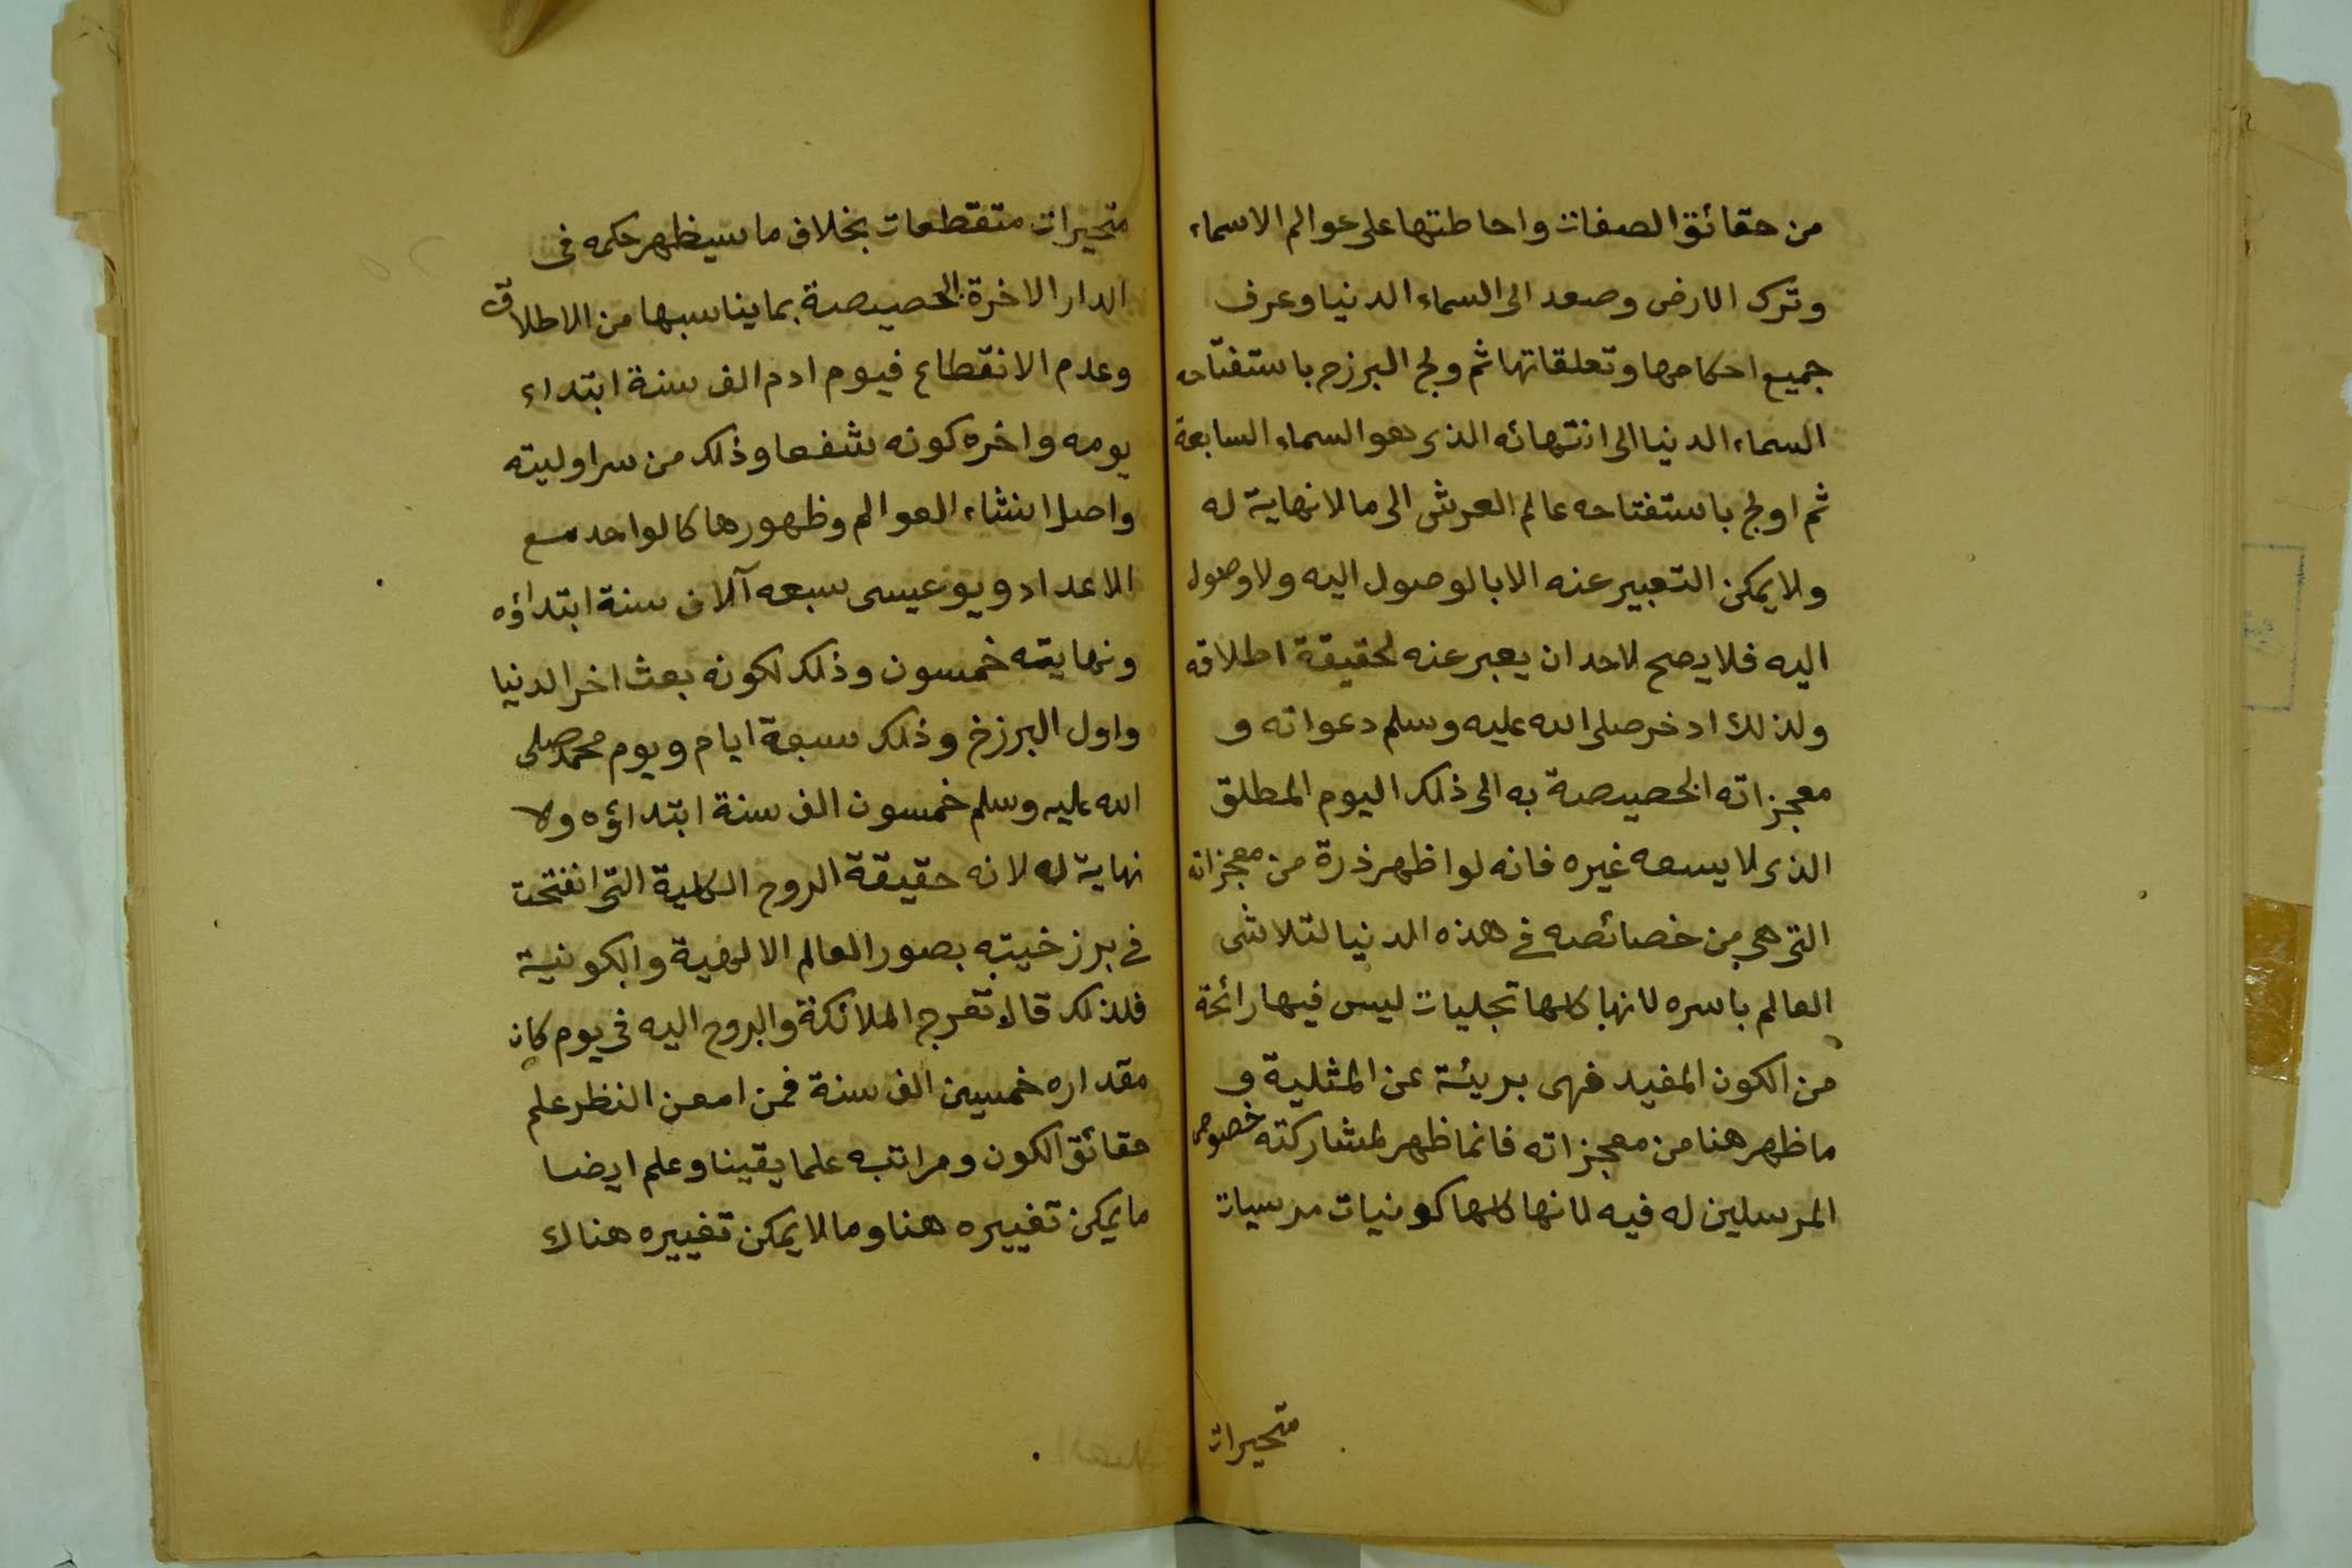 من حقائق الصفات واحاطتها على عوالم الاسماء
وترك الارض وصعد الى السماء الدنيا وعرف
جميع احكامها وتعلقاتها ثم ولج البرزح باستفتاحه
السماء الدنيا الى انتهائه الذى هو السماء السابعة
ثم اولج باستفتاحه عالم العرش الى مالا نهاية له
ولا يمكن التعبير عنه الا بالوصول اليه ولا وصول
اليه فلا يصح لاحد ان يعبر عنه لحقيقة اطلاقه
ولذلك ادخر صلى الله عليه وسلم دعواته و
معجزاته الخصيصة به الى ذلك اليوم المطلق
الذى لا يسعه غيره فانه لو اظهر ذرة من معجزاته
التى هى من خصائصه فى هذه الدنيا لتلاشى
العالم باسره لانها كلها تجليات ليس فيها رائحة
من الكون المفيد فهى بريئة عن المثلية و
ما ظهر هنا من معجزاته فانما ظهر لمشاركته خصوص
المرسلين له فيه لانها كلها كونيات مرسيات
متحيرات
متحيرات متقطعات بخلاف ما سيظهر حكمه فى
الدار الاخرة الخصيصة بما يناسبها من الاطلاق
وعدم الانقطاع فيوم ادم الف سنة ابتداء
يومه واخره كونه شفعا وذلك من سر اوليته
واصل انشاء العوالم وظهورها كالواحد مع
الاعداد ويو عيسى سبعه آلاف سنة ابتداؤه
ونهايته خمسون وذلك لكونه بعث اخر الدنيا
واول البرزخ وذلك سبعة ايام ويوم محمد صلى
الله عليه وسلم خمسون الف سنة ابتداؤه ولا
نهاية له لانه حقيقة الروح الكلية التى انفتحت
فى برزخيته بصور العالم الالهية والكونية
فلذلك قال تعرج الملائكة والروح اليه فى يوم كان
مقداره خمسين الف سنة فمن امعن النظر علم
حقائق الكون ومراتبه علما يقينا وعلم ايضا
ما يمكن تغييره هنا وما لا يمكن تغييره هناك